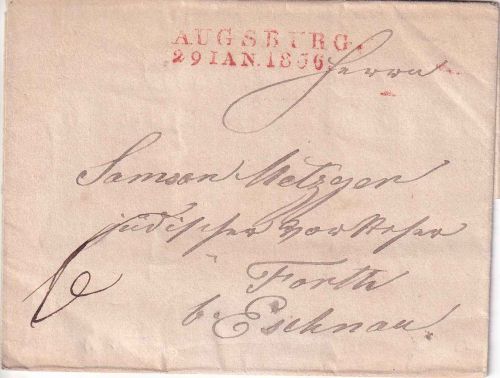 AUGSBURG.
29 IAN. 1836.
Herrn
Samson Metzger
jüdischer Vorsteher
Forth
b. Eschnau.
6